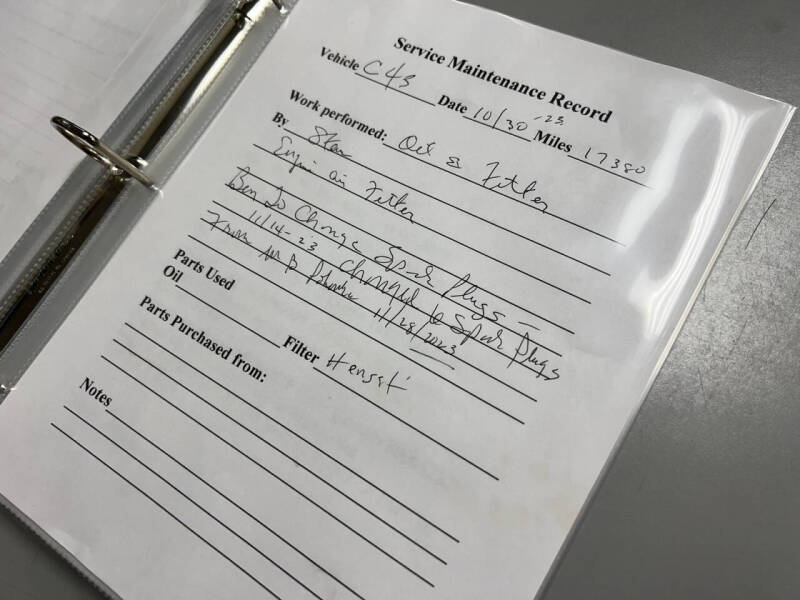 Service Maintenance Record
Vehicle C4s Date 10/30-23 Miles 17380
Work performed: Oil & Filter
By Stan
Engin air Filter
Ben to Change Spark Plugs -
11/14-23 Changed 6 Spark Plugs
From 11/28/2023
Parts Used
Oil Filter Hengst
Parts Purchased from:
Notes